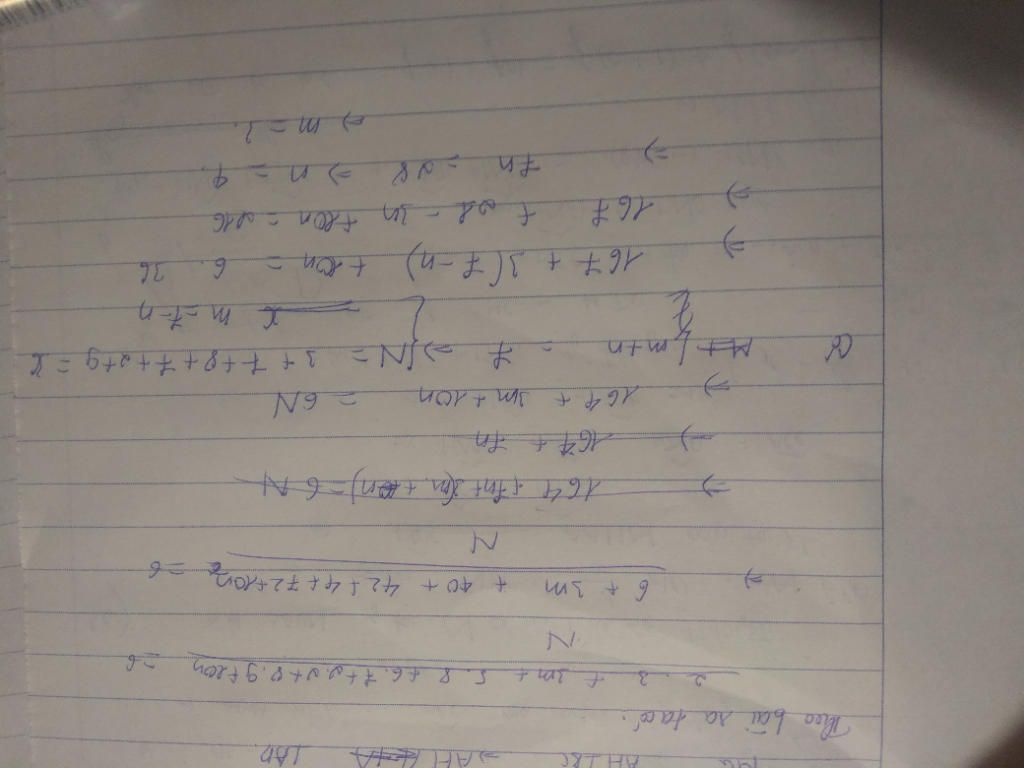 AH ⊥ BC ⇒ AH
Theo bài ra ta có:
2.3 + 3m + 5.8 + 6.7 + 2.2 + 8.9 + 10n / N = 6
⇒ 6 + 3m + 40 + 42 + 4 + 72 + 10n / N = 6
⇒ 164 + 7n + 3(m + n) = 6N
→ 164 + 7n
⇒ 164 + 3m + 10n = 6N
m+n = 7 ⇒ { N = 3 + 7 + 8 + 7 + 2 + 9 =
m = 7-n
⇒ 164 + 3(7-n) + 10n = 6.36
⇒ 164 + 21 - 3n + 10n = 216
⇒ 7n = 28 ⇒ n = 4
⇒ m = 3.